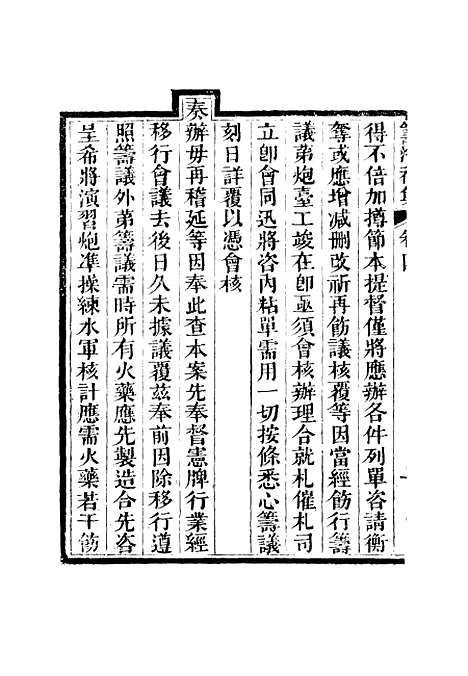 卷四
得不倍加撙節本提督僅將應辦各件列單咨請衡
奪或應增減刪改祈再飭議核覆等因當經飭行籌
議第炮臺工竣在卽亟須會核辦理合就札催札司
立卽會同迅將咨內粘單需用一切按條悉心籌議
刻日詳覆以憑會核
奏辦毋再稽延等因奉此查本案先奉督憲牌行業經
移行會議去後日久未據議覆茲奉前因除移行遵
照籌議外第籌議需時所有火藥應先製造合先咨
呈希將演習炮凖操練水軍核計應需火藥若干飭